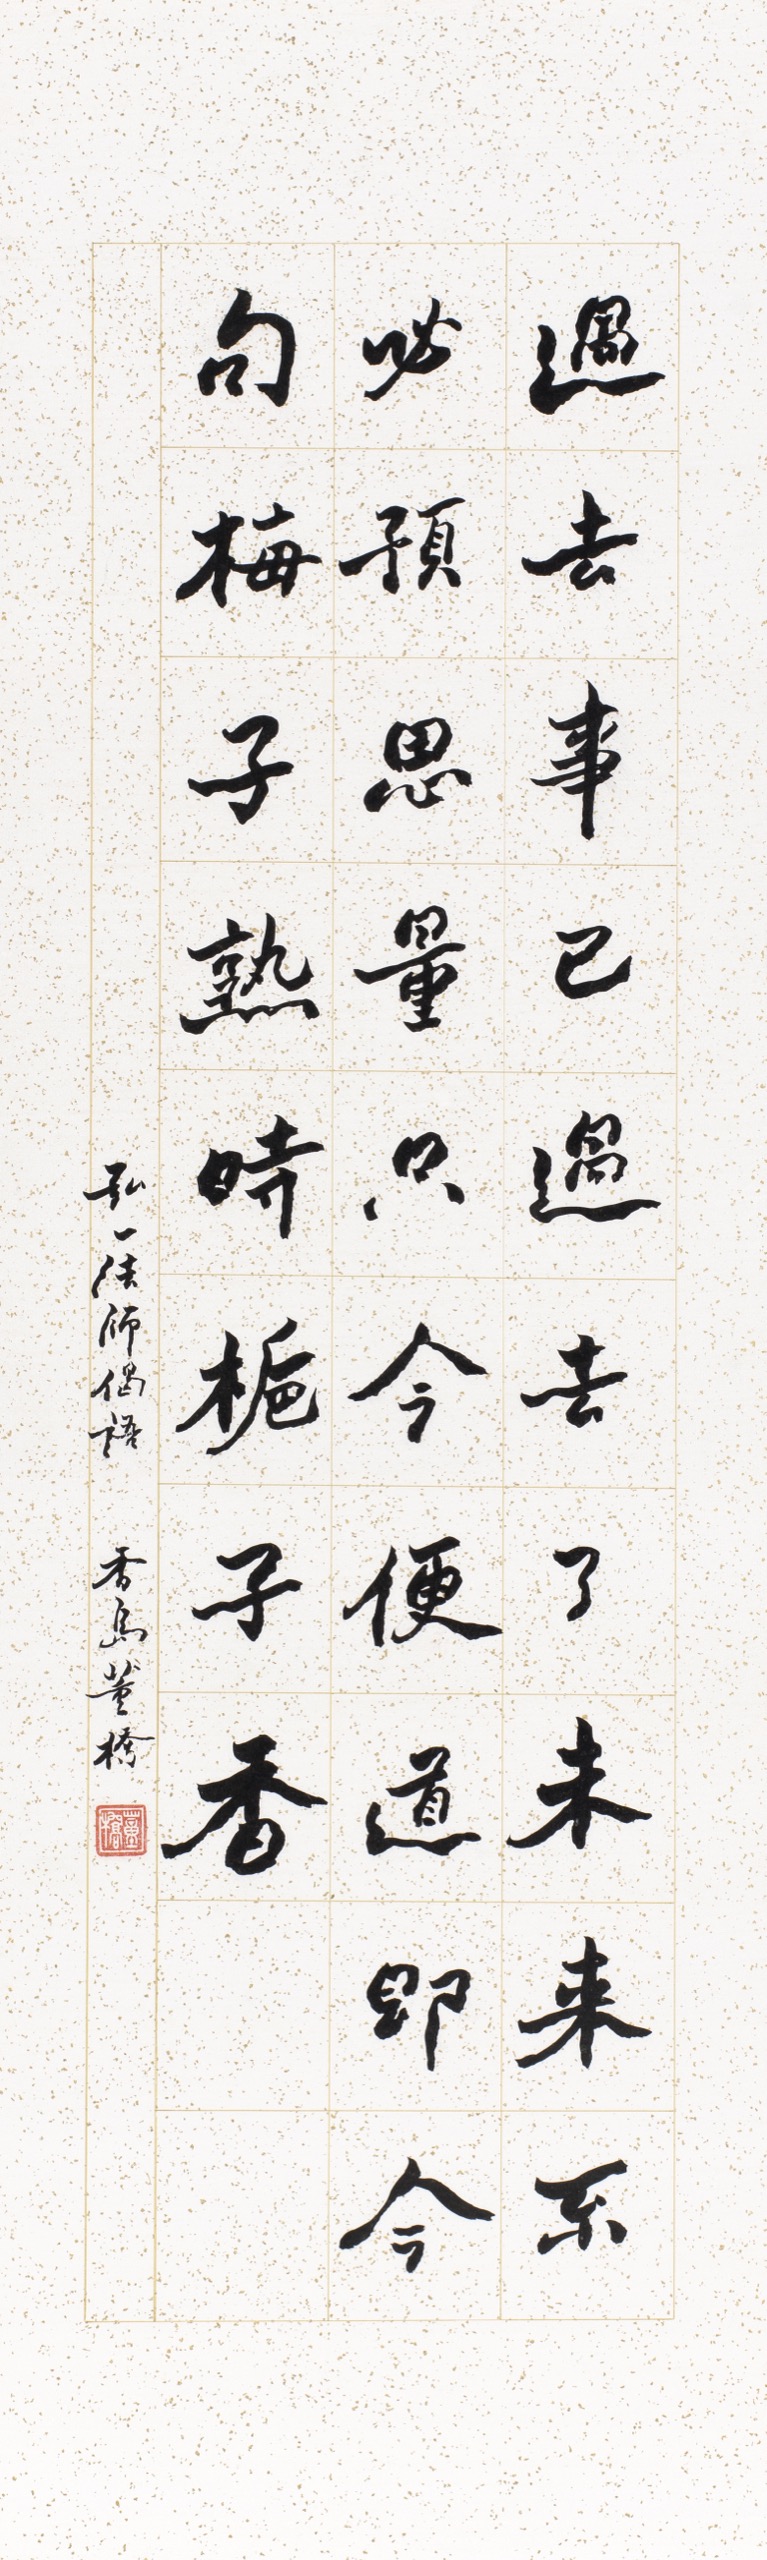 過去事已過去了未来不
必預思量只今便道即今
句梅子熟時梔子香
弘一法師偈語 香島董橋
董橋